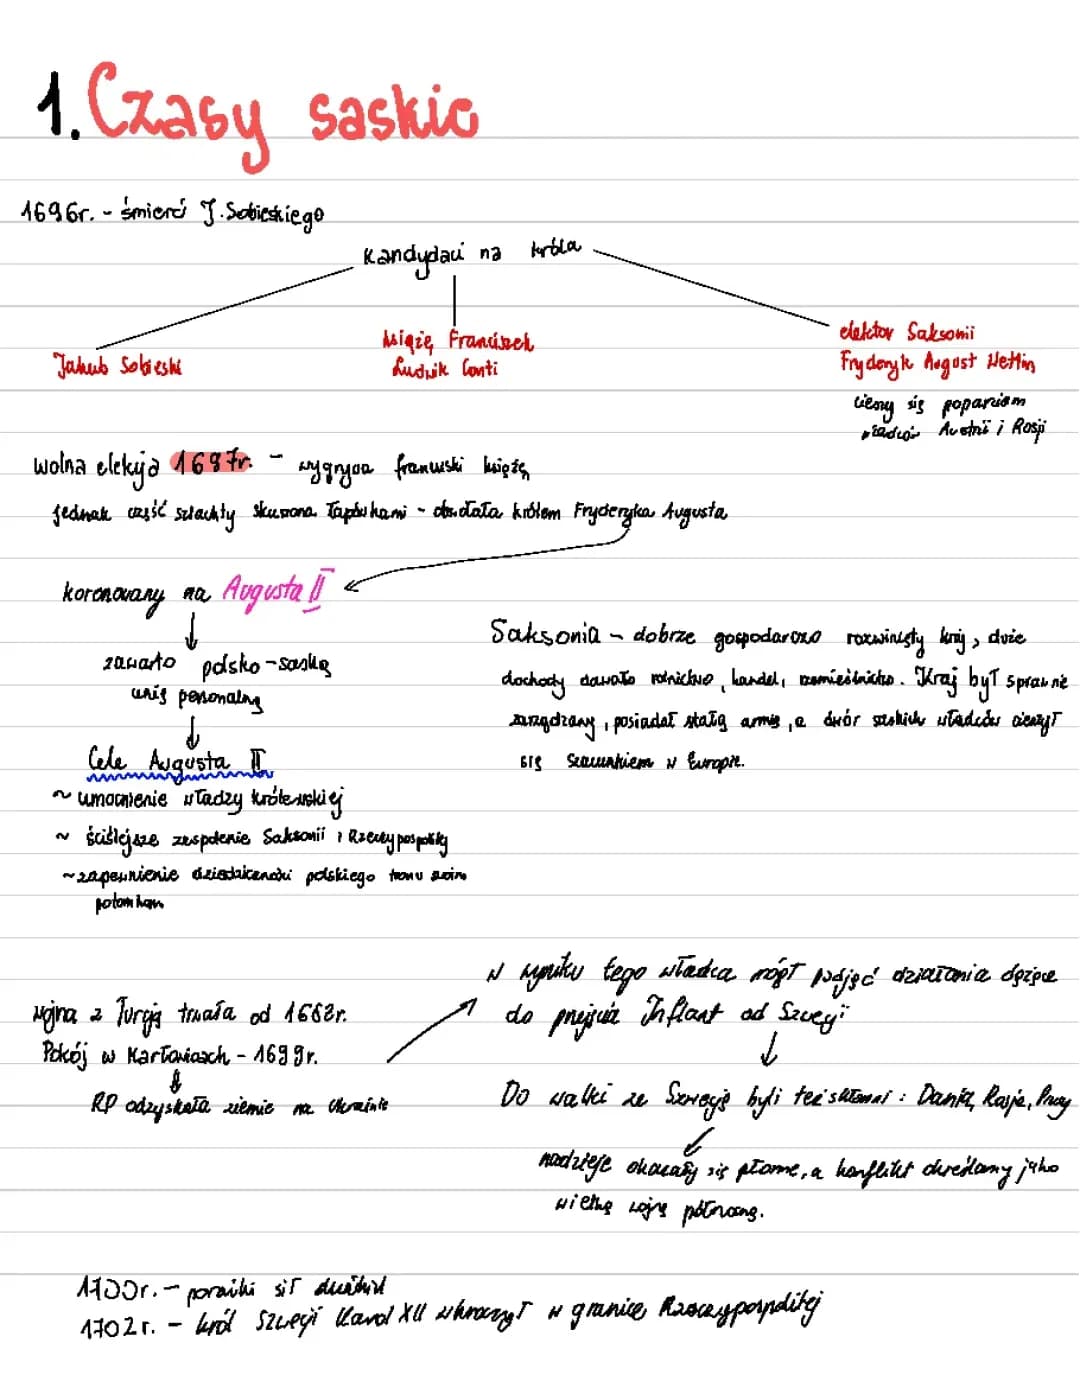 1. Czasy saskie
1696r. - śmierć J. Sobieskiego
Kandydaci na króla
Jakub Sobieski
książę Franciszek
Ludwik Conti
elektor Saksonii
Fryderyk August Wettin
cieszy się poparciem
władców Austrii i Rosji
wolna elekcja 1697r. - wygrywa francuski książę
jednak część szlachty skuszona łapówkami - obwołała królem Fryderyka Augusta
koronowany na Augusta II
zawarto polsko-saską
unię personalną
Cele Augusta II
~ umocnienie władzy królewskiej
~ ściślejsze zespolenie Saksonii i Rzeczypospolitej
~ zapewnienie dziedziczności polskiego tronu swoim
potomkom
Saksonia - dobrze gospodarczo rozwinięty kraj, duże
dochody dawało rolnictwo, handel, rzemieślnictwo. Kraj był sprawnie
zarządzany, posiadał stałą armię, a dwór saskich władców cieszył
się szacunkiem w Europie.
Wojna z Turcją trwała od 1683r.
Pokój w Karłowicach - 1699r.
RP odzyskała ziemie na Ukrainie
W wyniku tego władca mógł podjąć działania dążące
do przejęcia Inflant od Szwecji
Do walki ze Szwecją byli też skłonni: Dania, Rosja, Prusy
nadzieje okazały się płonne, a konflikt określamy jako
wielką wojnę północną.
1700r. - porażki sił duńskich
1702r. - król Szwecji Karol XII wkroczył w granice Rzeczypospolitej